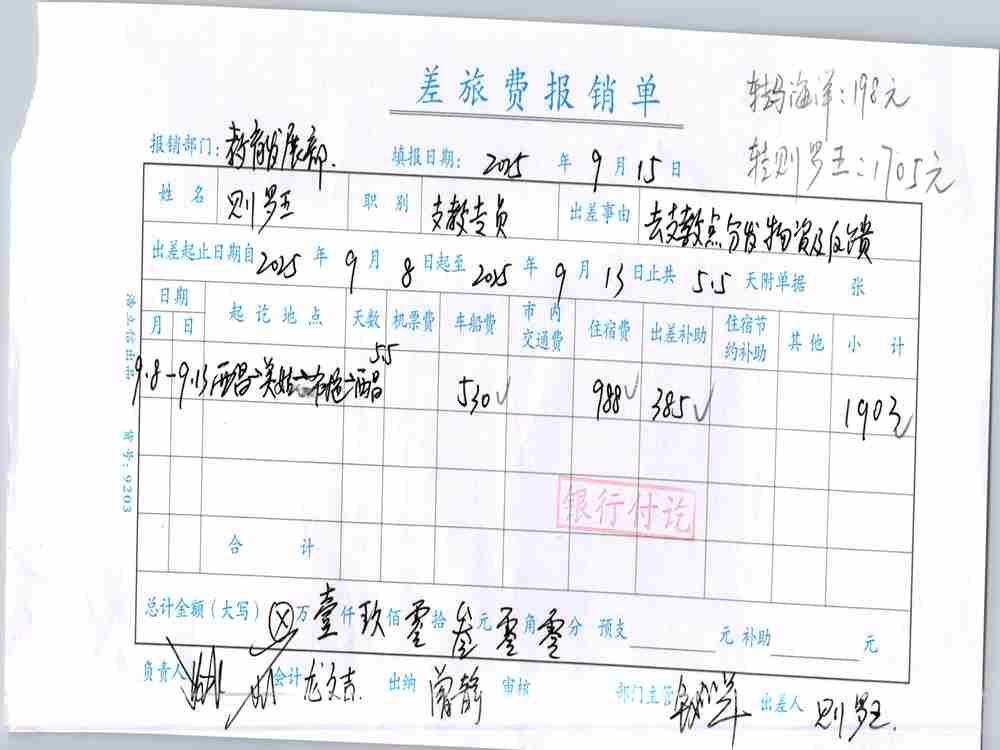 差旅费报销单
转玛海洋:198元
转则罗王:1705元
报销部门:教育发展部. 填报日期: 2025 年 9 月 15 日
姓名 则罗王 职别 支教专员 出差事由 去支教点分发物资及反馈
出差起止日期自 2025 年 9 月 8 日起至 2025 年 9 月 13 日止共 5.5 天附单据 张
日期 起讫地点 天数 机票费 车船费 市内交通费 住宿费 出差补助 住宿节约补助 其他 小计
月 日
9.8-9.13 西昌→美姑→布拖→西昌 5.5 530 988 385 1903
银行付讫
合计
总计金额(大写) ⊗万壹仟玖佰零拾叁元零角零分 预支 元 补助 元
负责人 会计 龙文吉. 出纳 曾静 审核 部门主管 出差人 则罗王.
货号:9203